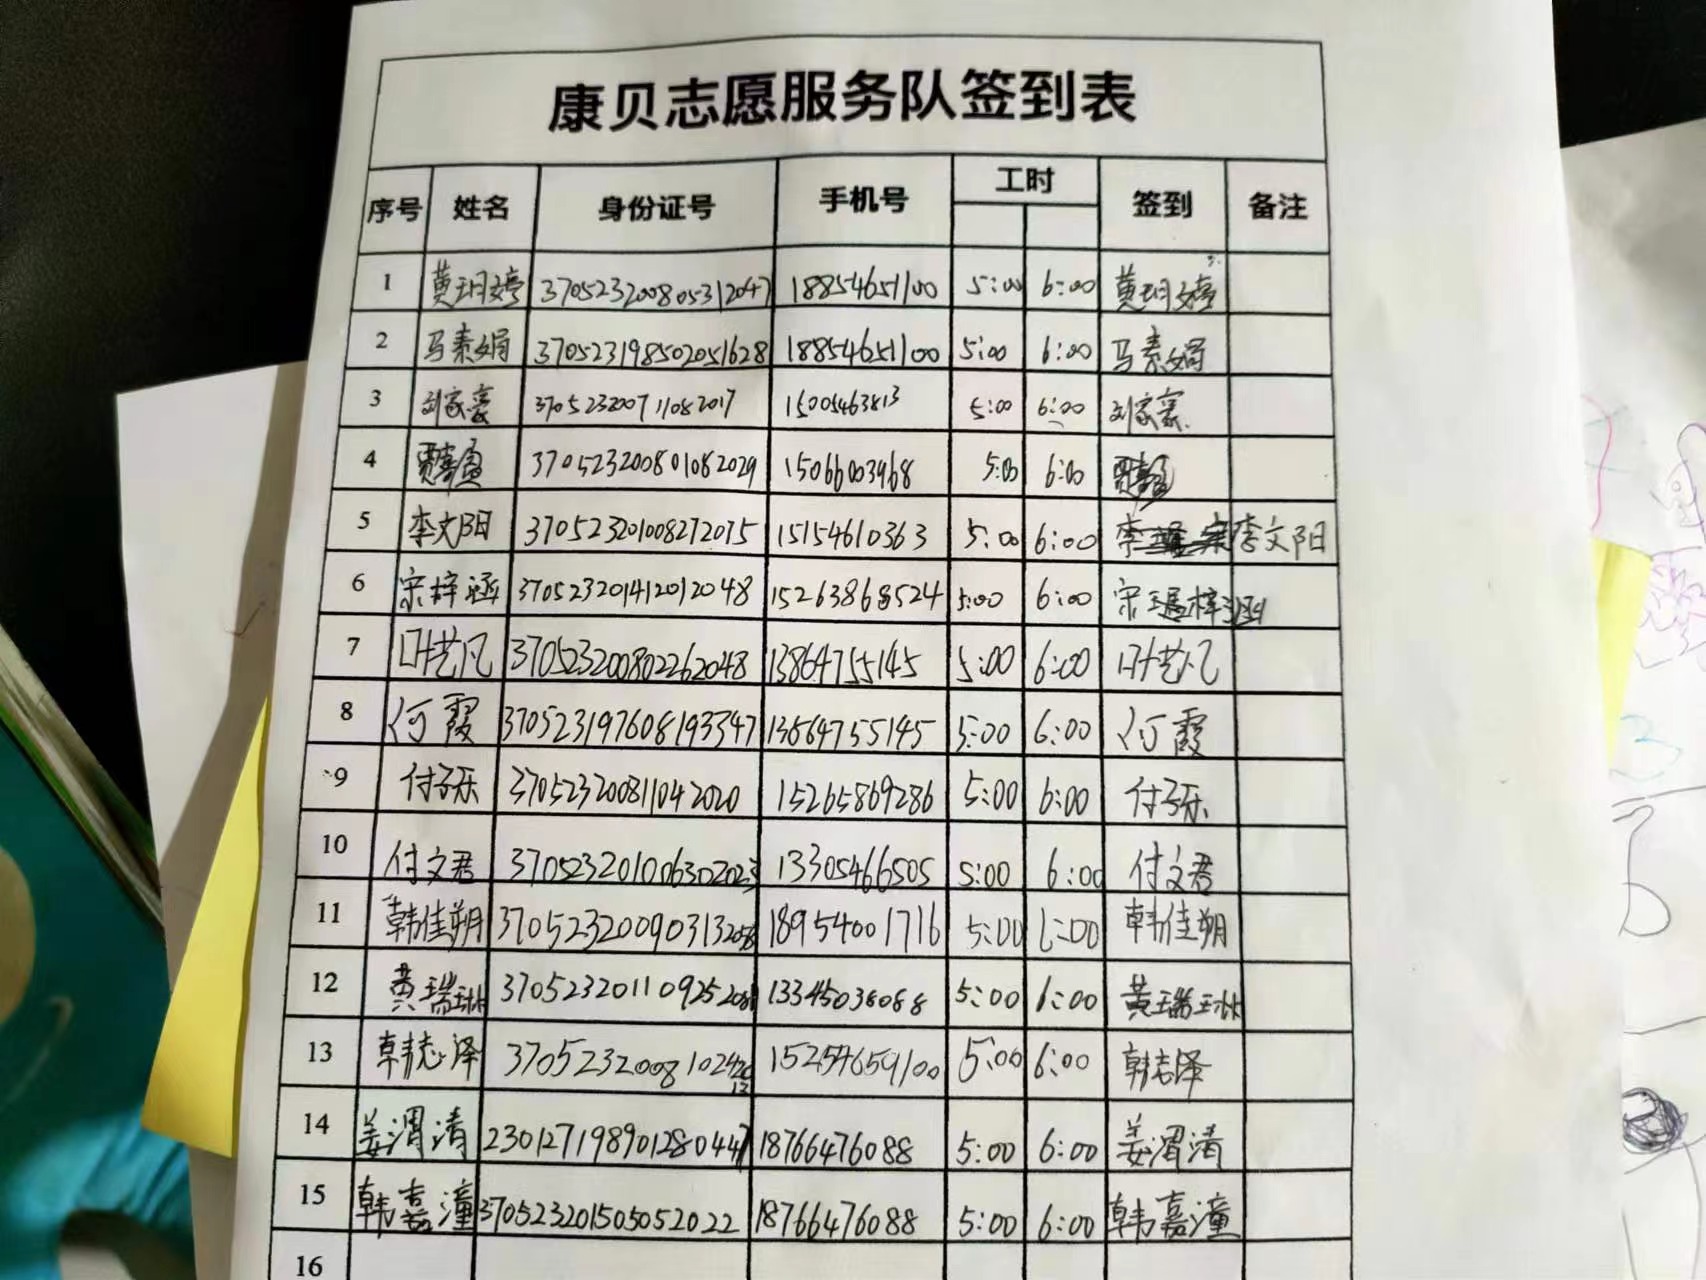 康贝志愿服务队签到表
序号 姓名 身份证号 手机号 工时 签到 备注
1 黄玥婷 370523200805312047 18854651100 5:00 6:00 黄玥婷
2 马素娟 370523198502051628 18854651100 5:00 6:00 马素娟
3 刘家豪 370523200711082017 15005463813 5:00 6:00 刘家豪
4 370523200801082029 15066003968 5:00 6:00
5 李文阳 370523201008272015 15154610363 5:00 6:00 李文阳
6 宋梓涵 370523201412012048 15263868524 5:00 6:00 宋梓涵
7 叶艺凡 370523200802262048 13864755145 5:00 6:00 叶艺凡
8 何霞 370523197608193347 13864755145 5:00 6:00 何霞
9 付子乐 370523200811042020 15265869286 5:00 6:00 付子乐
10 付文君 370523201006302023 13305466505 5:00 6:00 付文君
11 韩佳朔 18954001716 5:00 6:00 韩佳朔
12 黄瑞琳 13345038088 5:00 6:00 黄瑞琳
13 韩志泽 15254659100 5:00 6:00 韩志泽
14 姜渭清 230127198901280447 18766476088 5:00 6:00 姜渭清
15 韩嘉潼 370523201505052022 18766476088 5:00 6:00 韩嘉潼
16